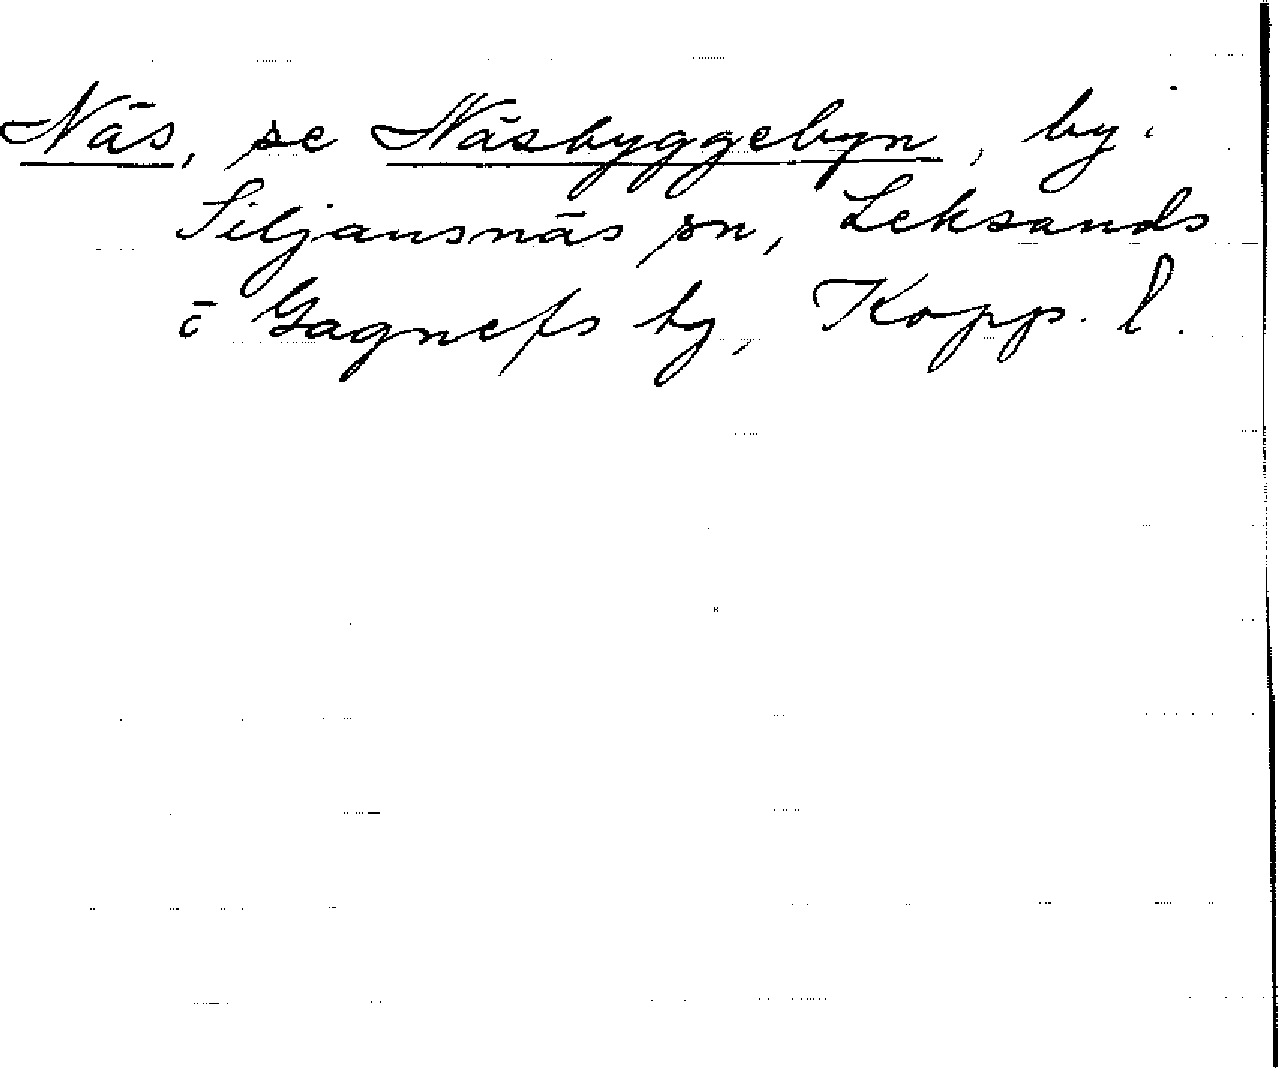 Näs, se Näsbyggebyn, by i
Siljansnäs sn, Leksands
o Gagnefs hg, Kopp. l.